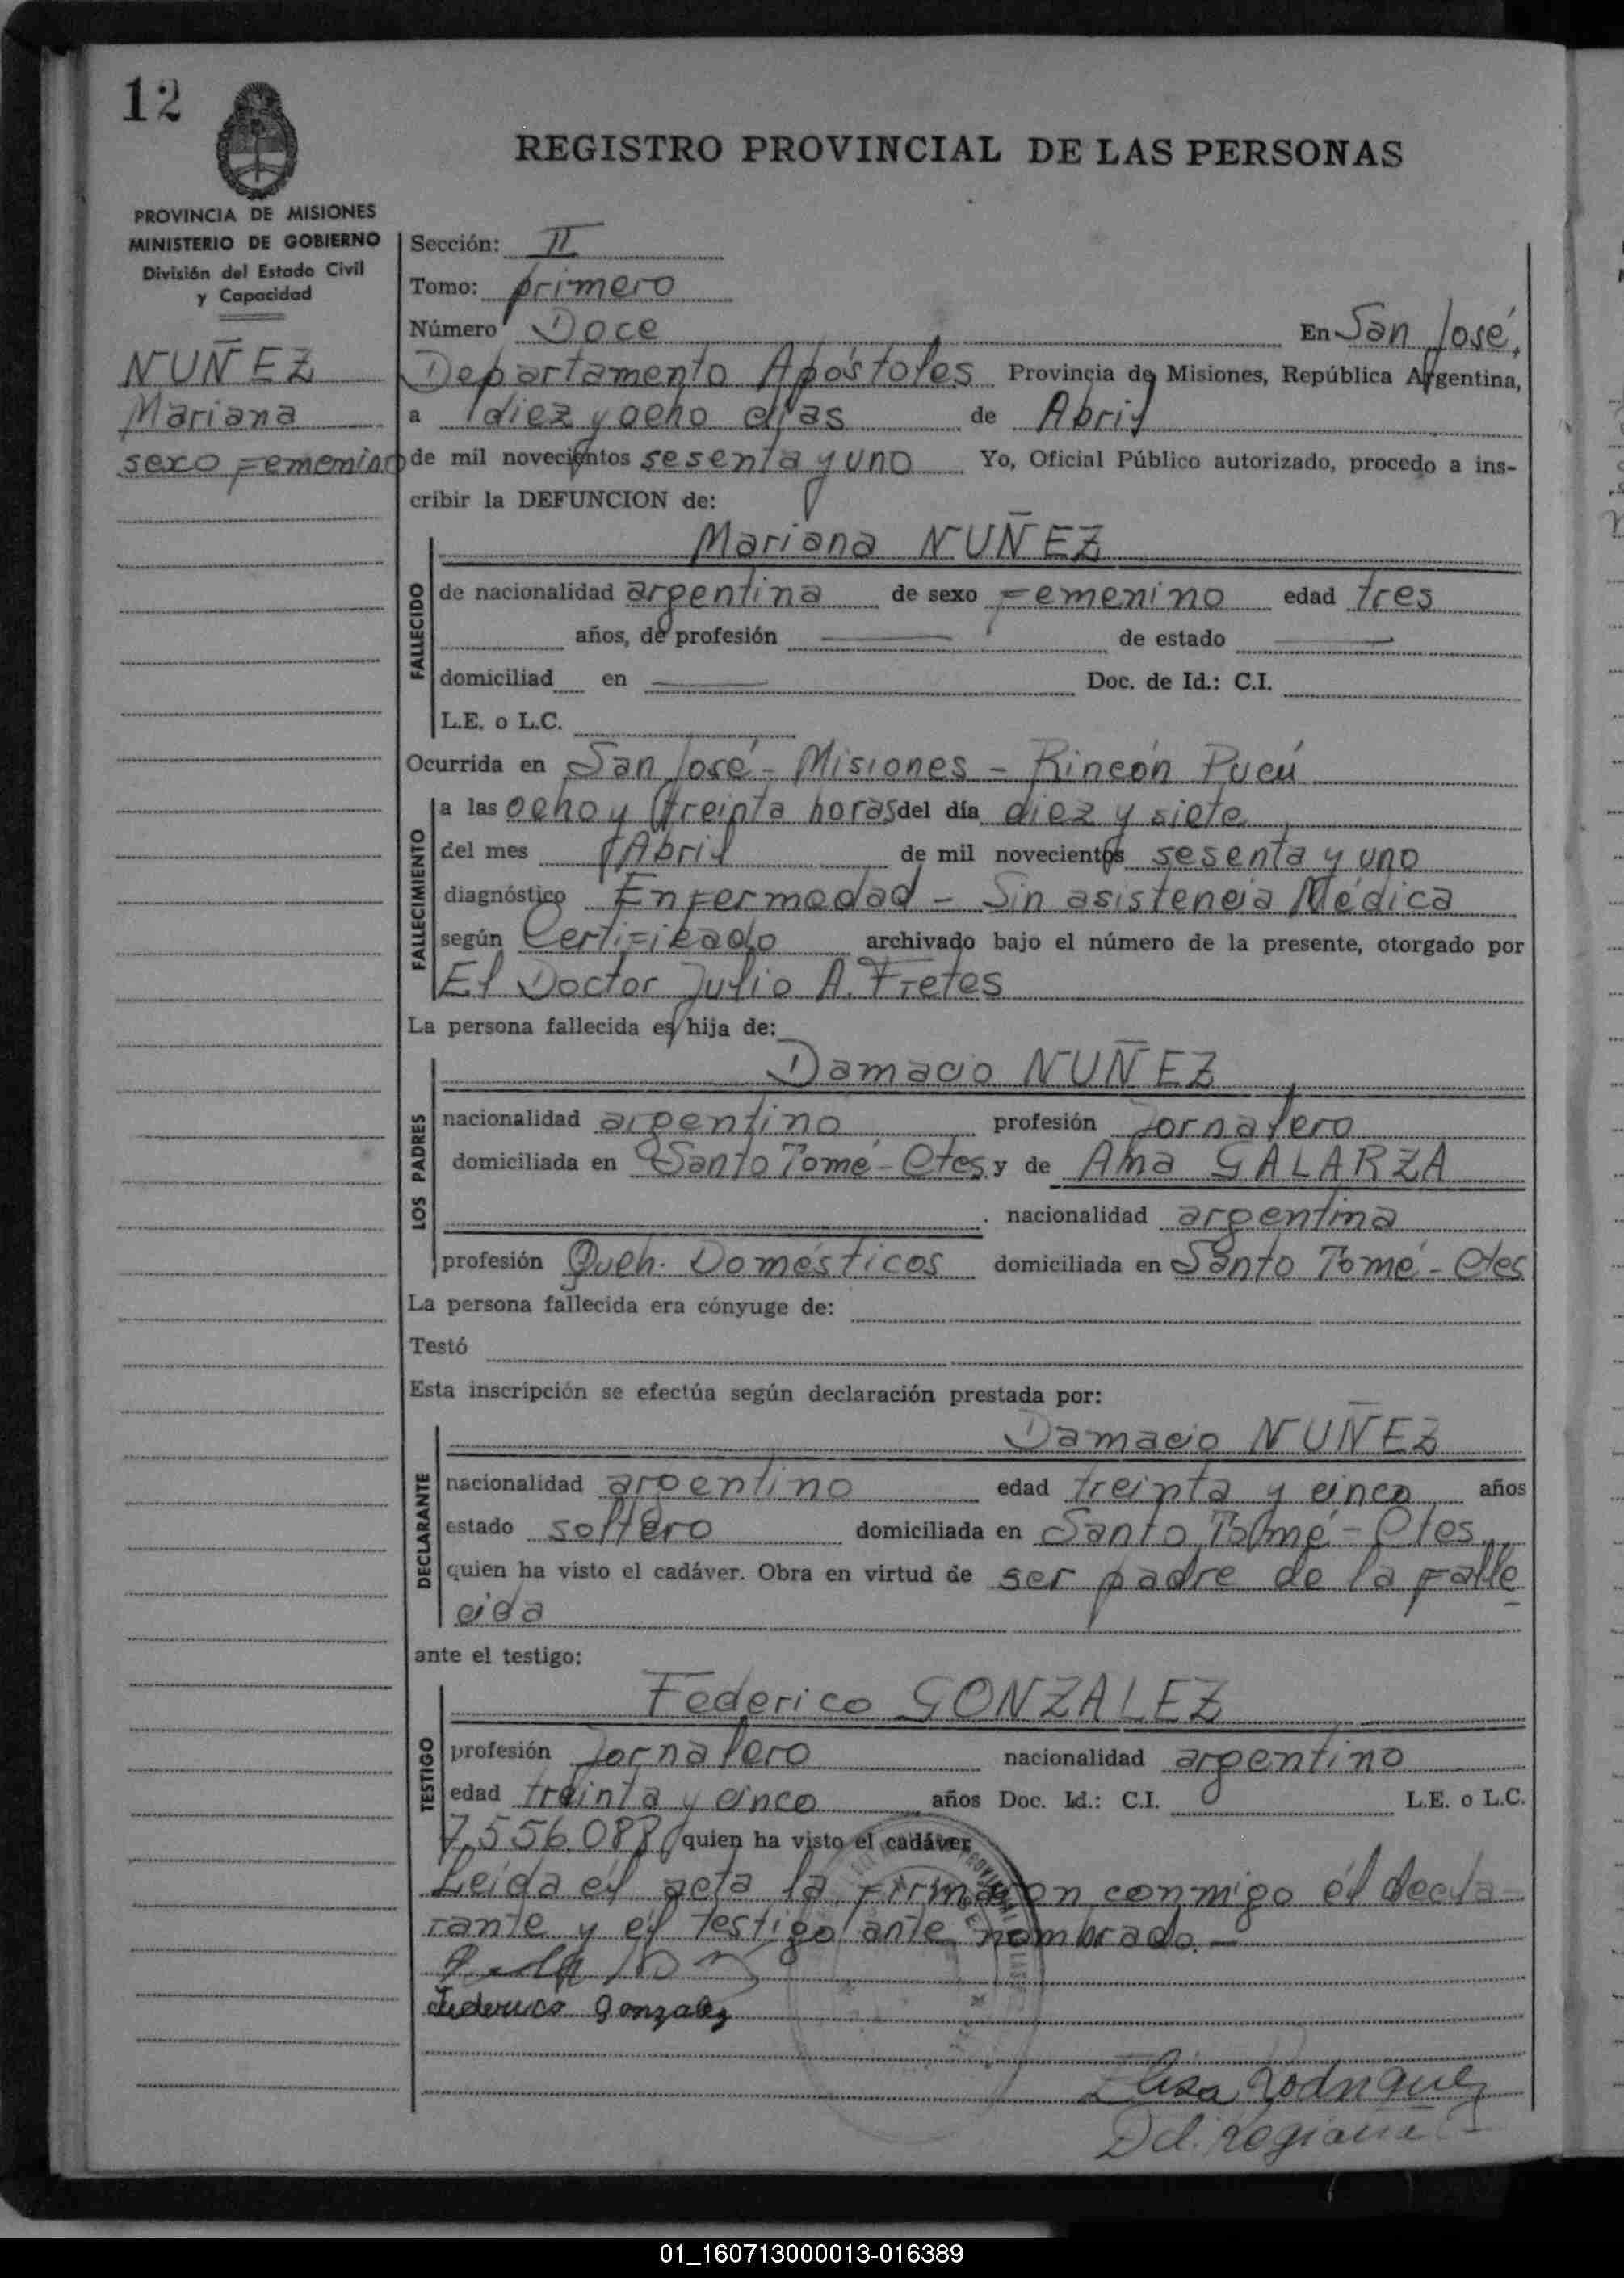 12
REGISTRO PROVINCIAL DE LAS PERSONAS
PROVINCIA DE MISIONES
MINISTERIO DE GOBIERNO
División del Estado Civil
y Capacidad
NUÑEZ
Mariana
sexo Femenino
Sección: II
Tomo: primero
Número Doce En San José,
Departamento Apóstoles Provincia de Misiones, República Argentina,
a diez y ocho días de Abril
de mil novecientos sesenta y uno Yo, Oficial Público autorizado, procedo a ins-
cribir la DEFUNCION de:
Mariana NUÑEZ
FALLECIDO
de nacionalidad argentina de sexo Femenino edad tres
años, de profesión — de estado —
domiciliad en — Doc. de Id.: C.I.
L.E. o L.C.
Ocurrida en San José - Misiones - Rincón Pucú
FALLECIMIENTO
a las ocho y treinta horas del día diez y siete
del mes Abril de mil novecientos sesenta y uno
diagnóstico Enfermedad - Sin asistencia Médica
según Certificado archivado bajo el número de la presente, otorgado por
El Doctor Julio A. Fretes
La persona fallecida es hija de:
Damacio NUÑEZ
LOS PADRES
nacionalidad argentino profesión Jornalero
domiciliada en Santo Tomé - Ctes y de Ana GALARZA
. nacionalidad argentina
profesión Queh. Domésticos domiciliada en Santo Tomé - Ctes
La persona fallecida era cónyuge de:
Testó
Esta inscripción se efectúa según declaración prestada por:
Damacio NUÑEZ
DECLARANTE
nacionalidad argentino edad treinta y cinco años
estado soltero domiciliada en Santo Tomé - Ctes.
quien ha visto el cadáver. Obra en virtud de ser padre de la falle
cida
ante el testigo:
Federico GONZALEZ
TESTIGO
profesión Jornalero nacionalidad argentino
edad treinta y cinco años Doc. Id.: C.I. L.E. o L.C.
7.556.088 quien ha visto el cadáver
Leída el acta la firmaron conmigo él decla-
rante y el testigo ante nombrado. —
Federico Gonzalez
Elisa Rodriguez
01_160713000013-016389